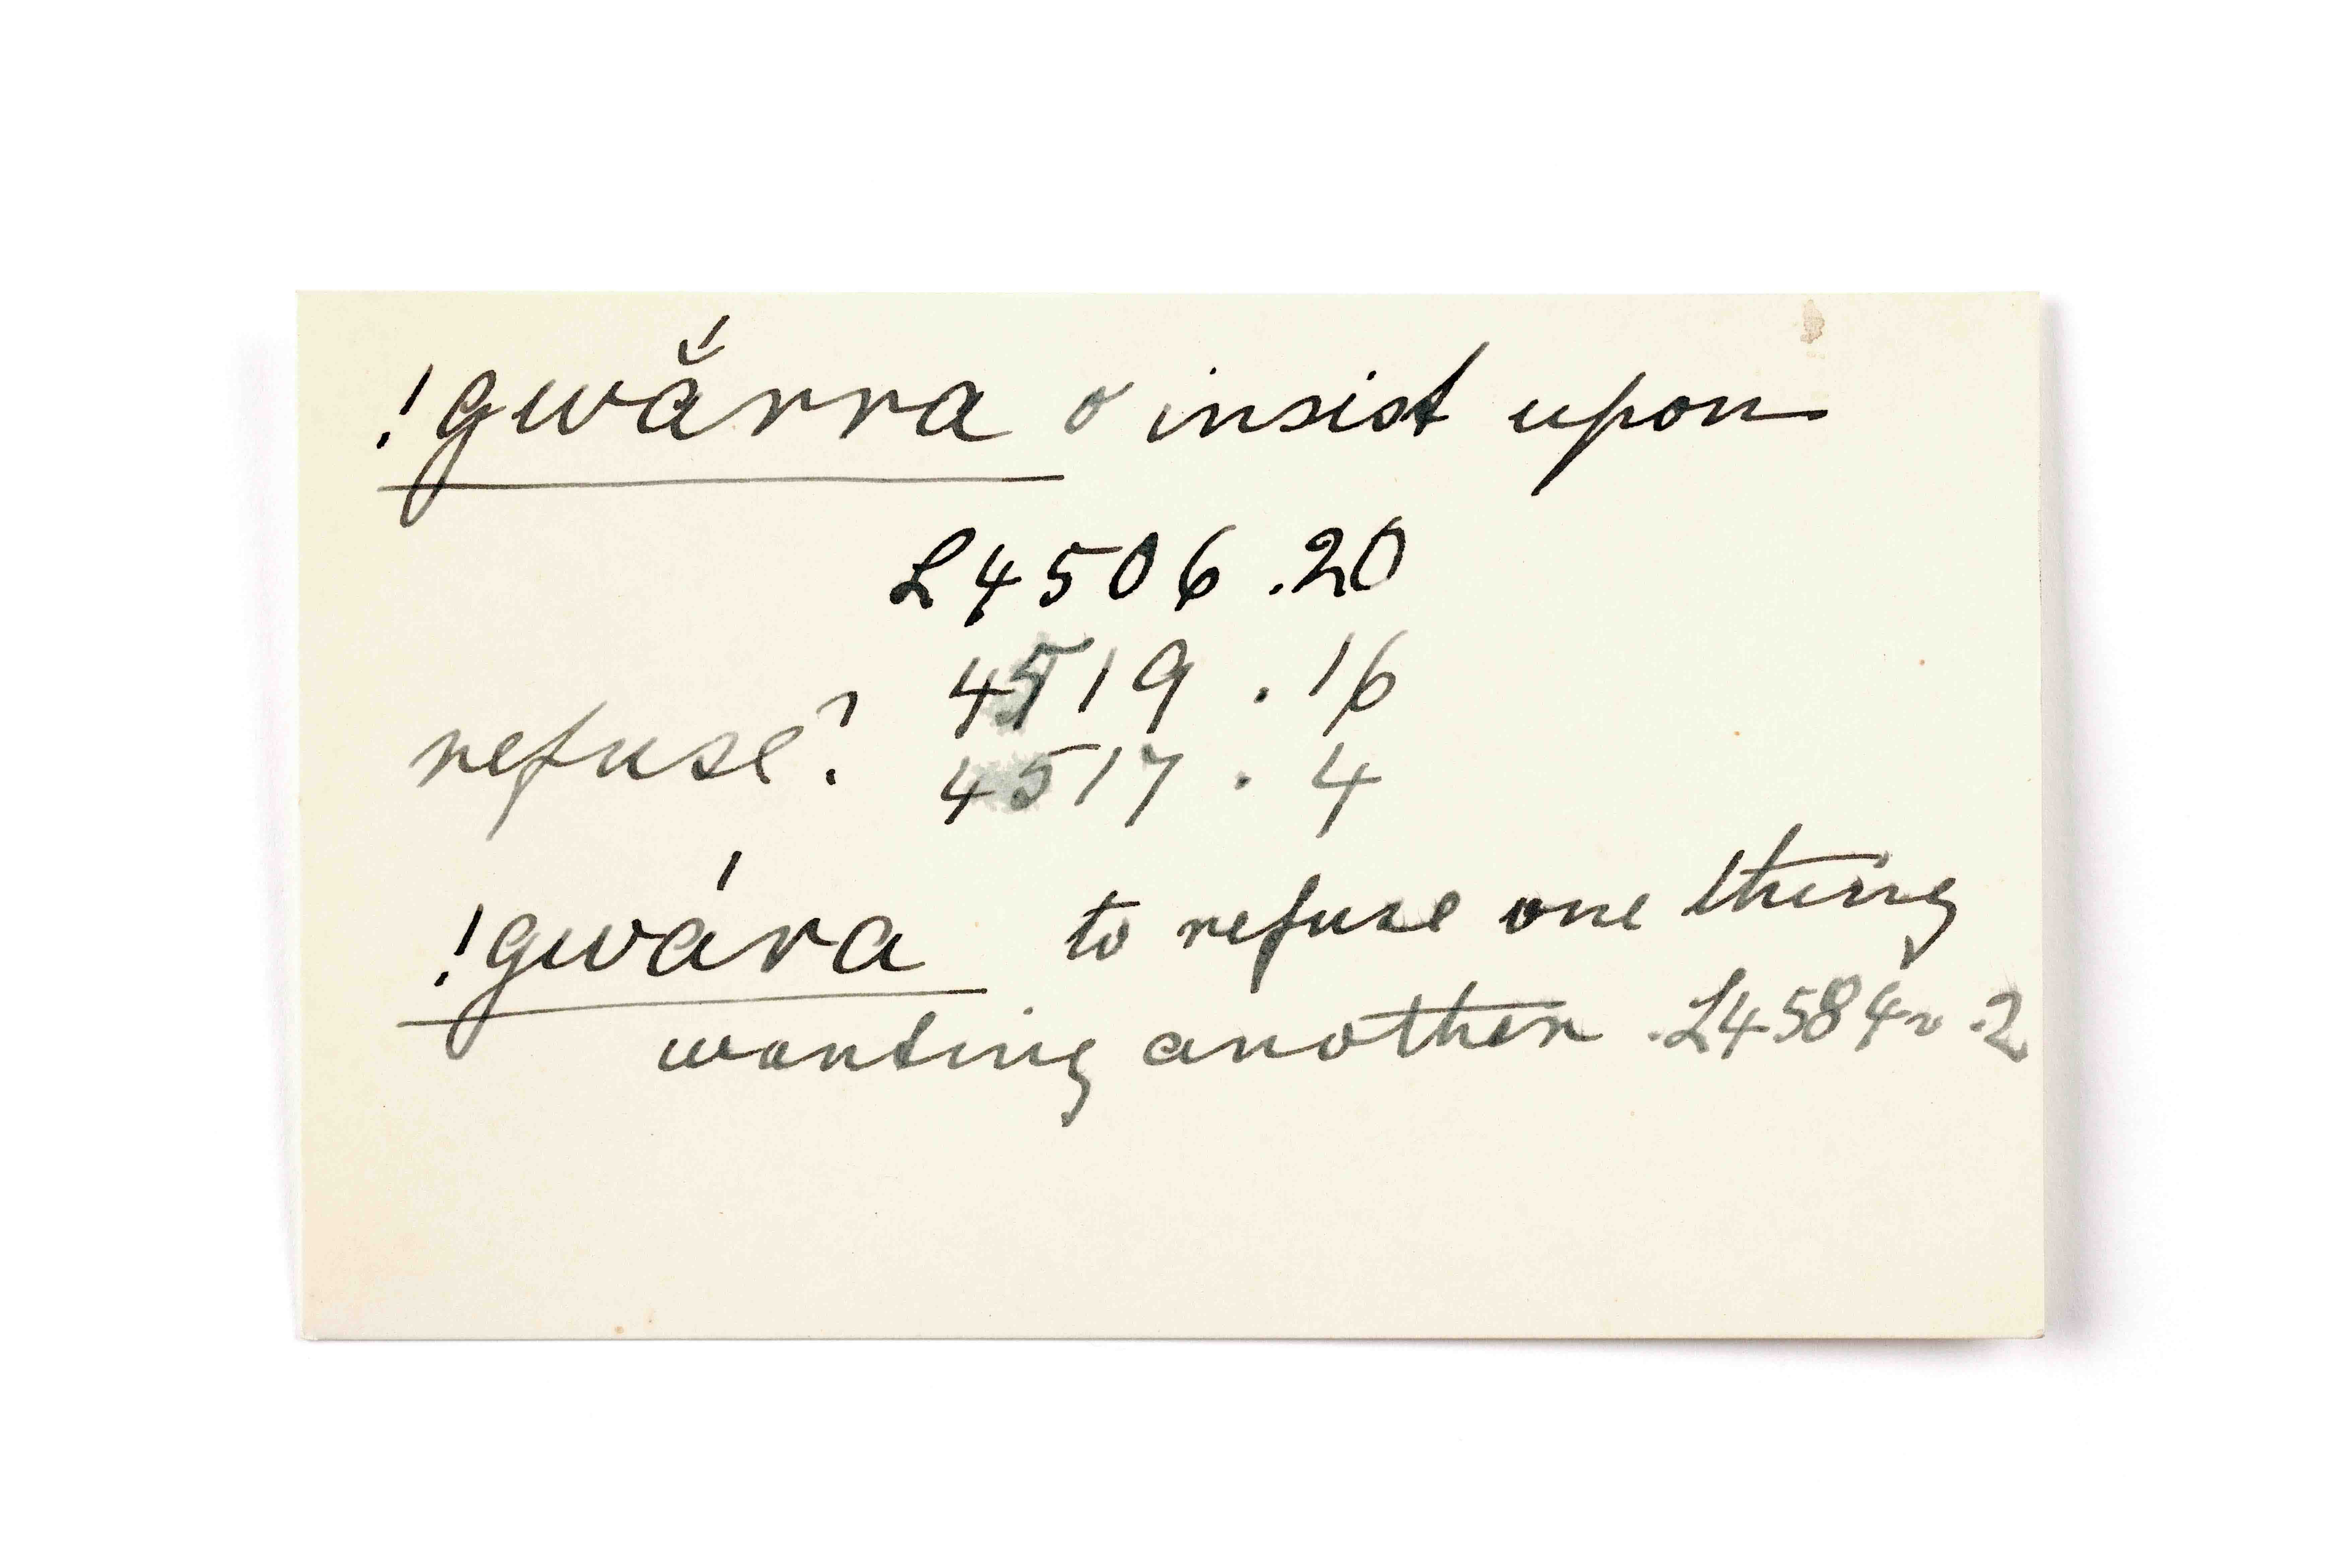 !gwắrra o insist upon
L4506.20
4519.16
refuse? 4517.4
!gwára to refuse one thing
wanting another. L4584v.2